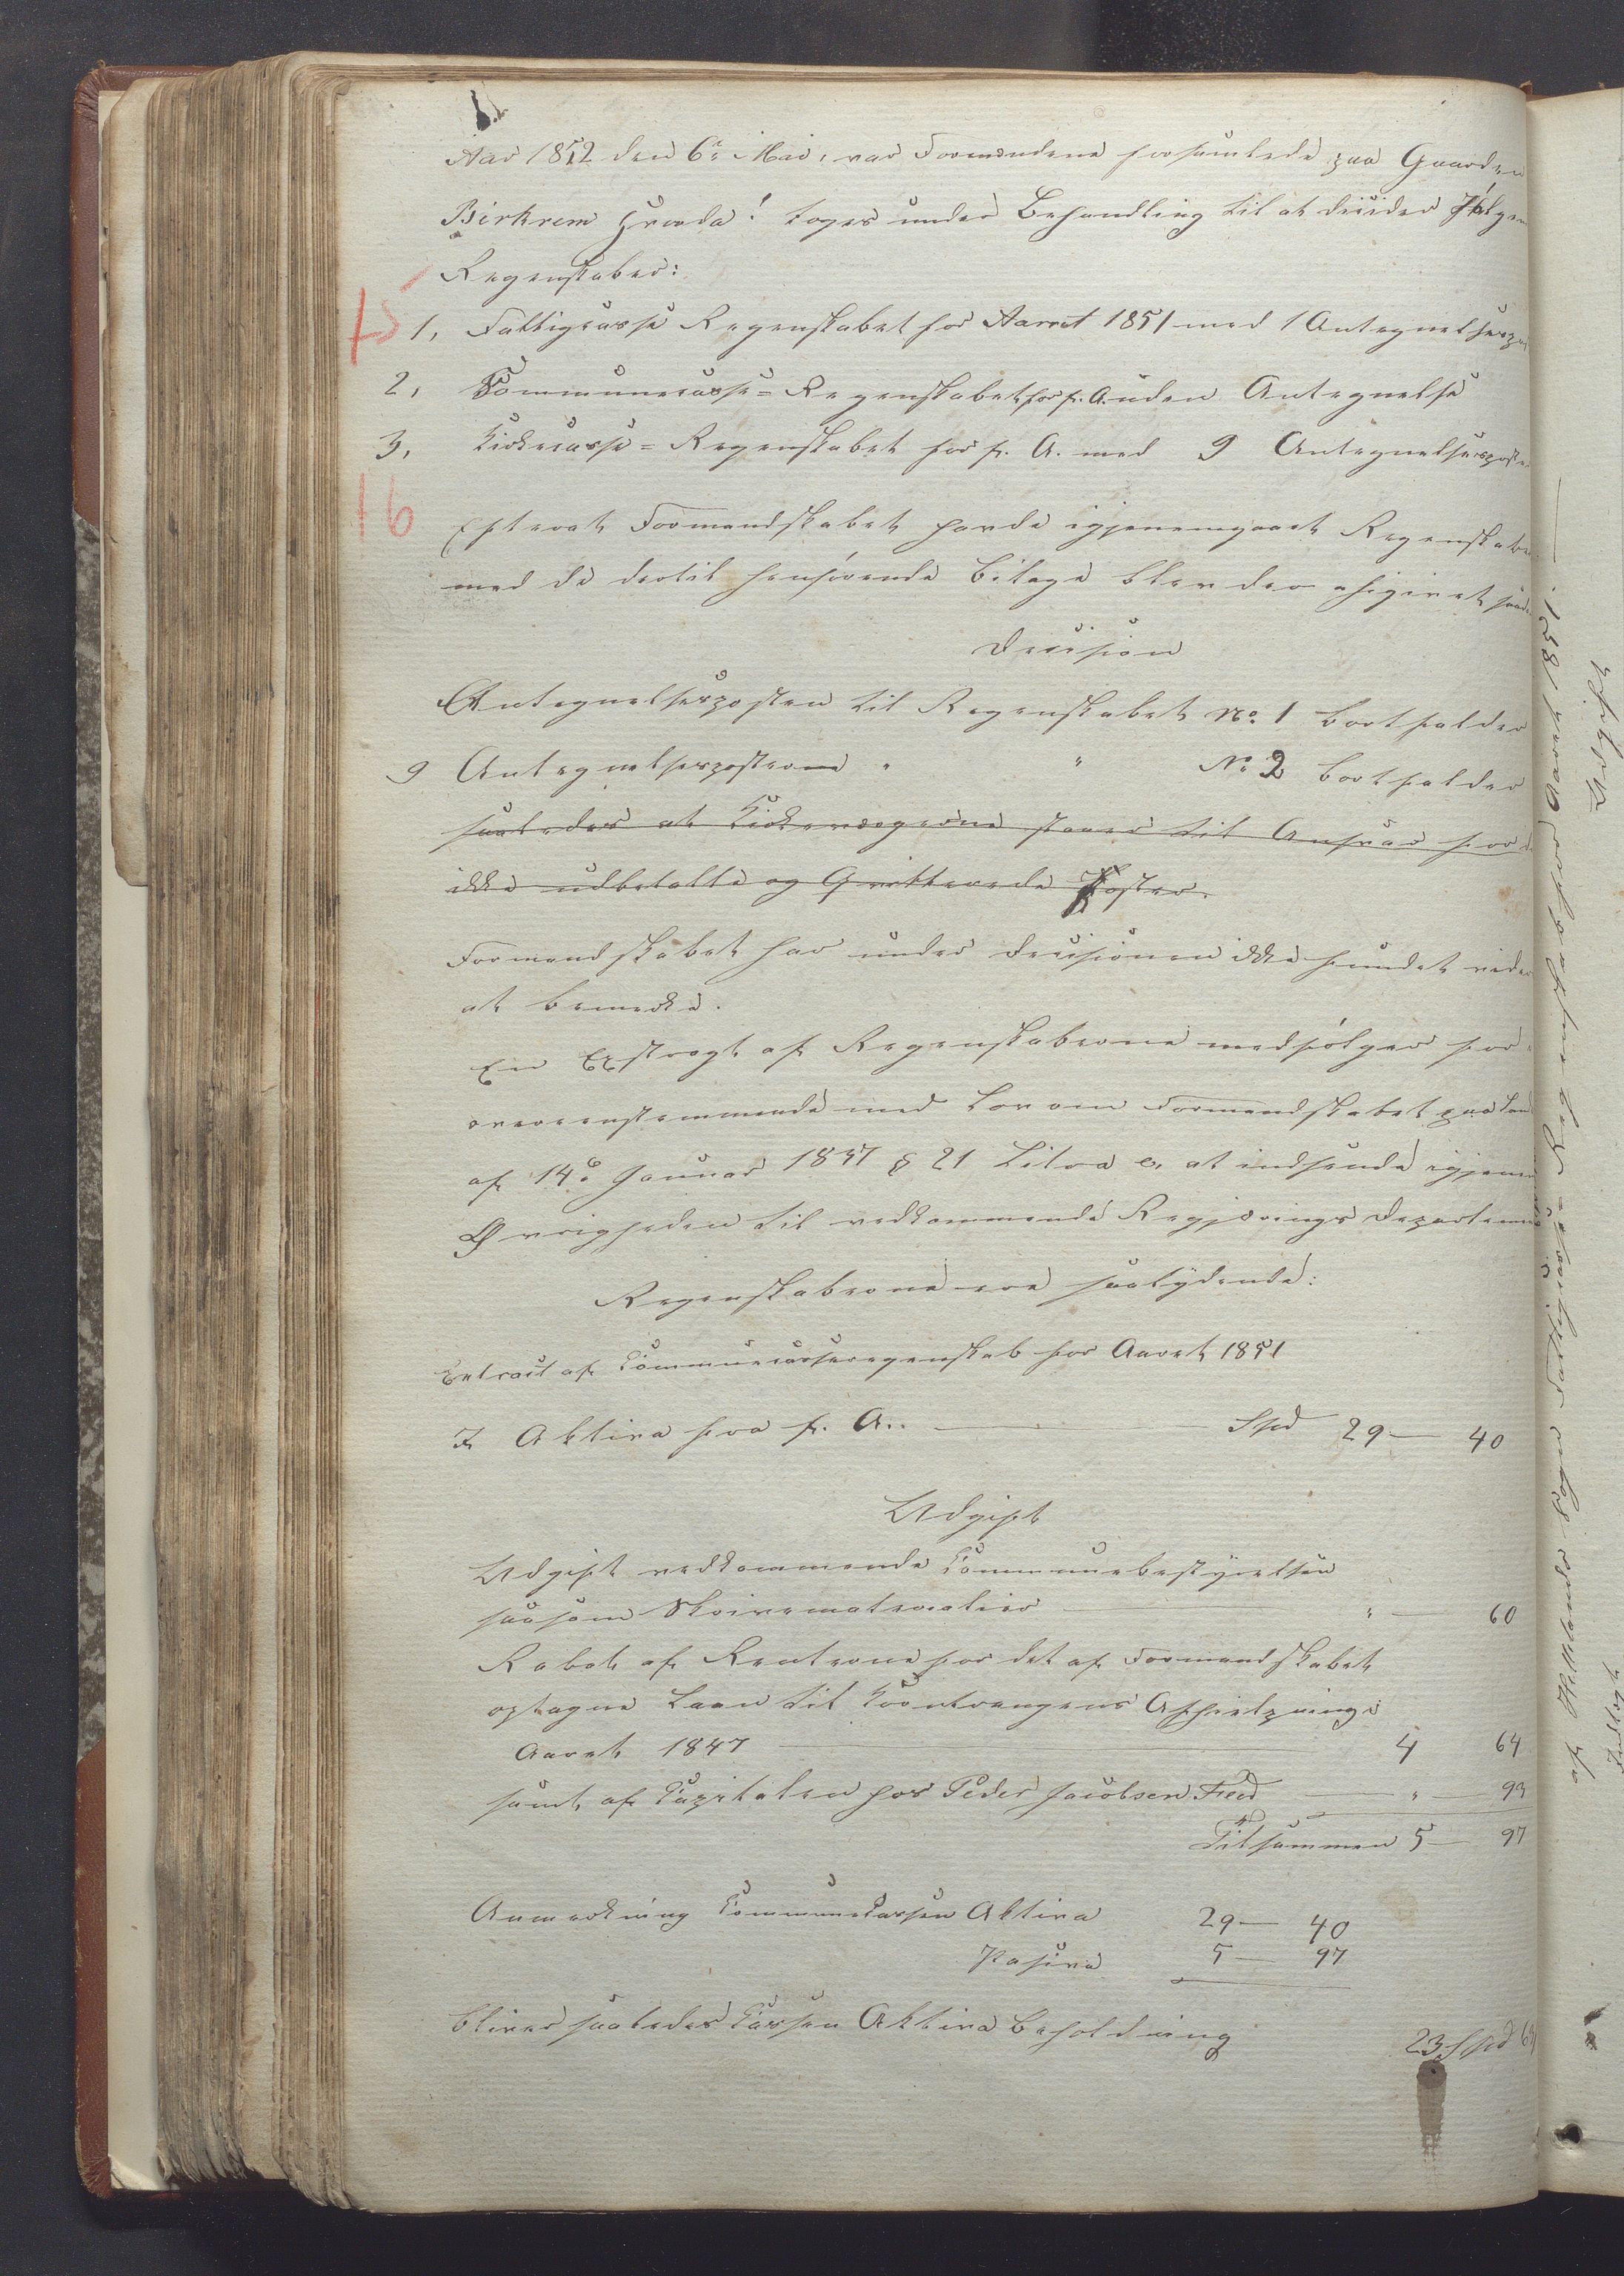 Aar 1852 den 6te Mai, var Formændene forsamlede paa Gaarden
Birkrem hvorda! toges under Behandling til at deciders Følgen
Regenskaber:
15
1, Fattigcasse Regenskabet for Aarret 1851 med 1 Antegnelsespo
2, Communecasse=Regenskabet for f. A. uden Antegnelse
3, Kirkecasse=Regenskabet for f. A. med 9 Antegnelsesposte
16
Efterat Formandskabet havde igjenemgaaet Regenskabe
med de dertil henhørende Bilage blev der afgivet saad
Decision
Antegnelsesposten til Regenskabet No. 1 bortfalder
9 Antegnelsesposterne " " No 2 bortfalder
saaledes at Kirkeværgerne staaes til Ansvar for d
ikke udbetalte og Qvitterede Poster.
Formandskabet har under Decisionen ikke fundet vider
at bemerke.
En Exstragt af Regenskaberne medfølger for
overeenstemmende med Lov om Formandskabet paa Land
af 14de Januar 1837 § 21 Litra e, at indsende igjenem
Øvrigheden til vedkommende Regjerings Departeme
Regenskaberne ere saalydende:
Extract af Communecasseregenskab for Aaret 1851
I Aktiva fra f. A.. — Spd 29 — 40
Udgift
Udgift vedkommende Communebestyrelsen
saasom Skrivematerialier — " — 60
Rabat af Renterne for det af Formandskabet
optagne Laan til Korntrangens Afhielpninge
Aaret 1847 — 4 64
samt af Capitalen hos Peder Jacobsen Fied — " — 93
Tilsammen 5 — 97
Anmerkning Communekassen Aktiva 29 — 40
Pasiva 5 — 97
bliver saaledes Cassen Aktiva Beholdning
23 Spd 63
af Hællands Sogns Fattigcasse=Regenskab for Aaret 1851.
Indtægt
Udgift